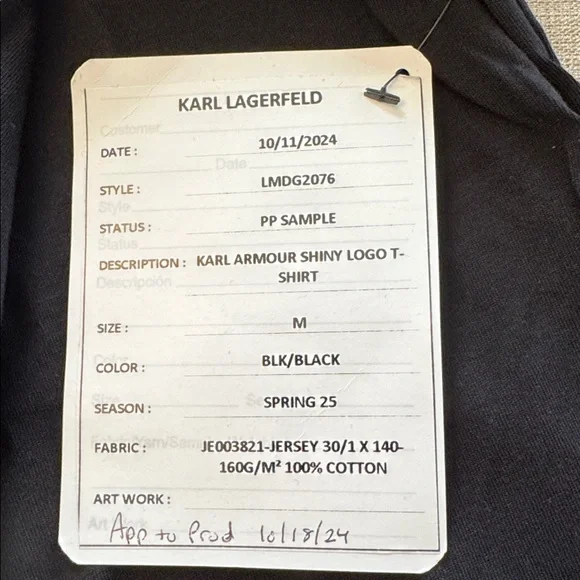 KARL LAGERFELD
Customer
DATE : 10/11/2024
Date
STYLE : LMDG2076
Style
STATUS : PP SAMPLE
Status
DESCRIPTION : KARL ARMOUR SHINY LOGO T-
SHIRT
Descripción
SIZE : M
COLOR : BLK/BLACK
Color
Size
SEASON : SPRING 25
FABRIC : JE003821-JERSEY 30/1 X 140-
160G/M² 100% COTTON
ART WORK :
Art
App to Prod 10/18/24